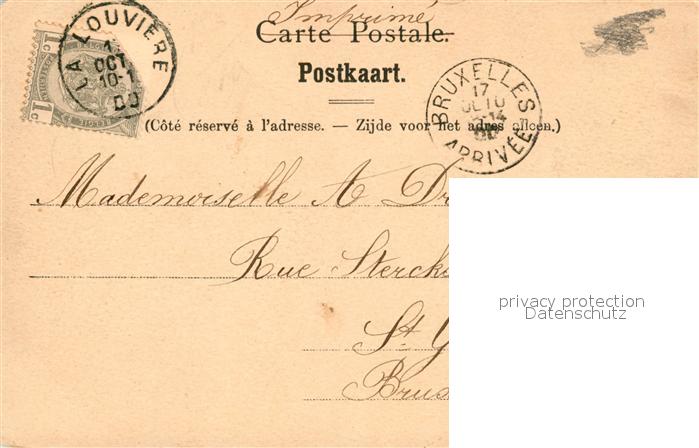 Imprimé
Carte Postale.
Postkaart.
(Côté réservé à l'adresse. — Zijde voor het adres alleen.)
LA LOUVIÈRE
OCT
10-1
1c
1c
BRUXELLES
17
ARRIVÉE
Mademoiselle A
Rue Sterck
St
Brux
privacy protection
Datenschutz